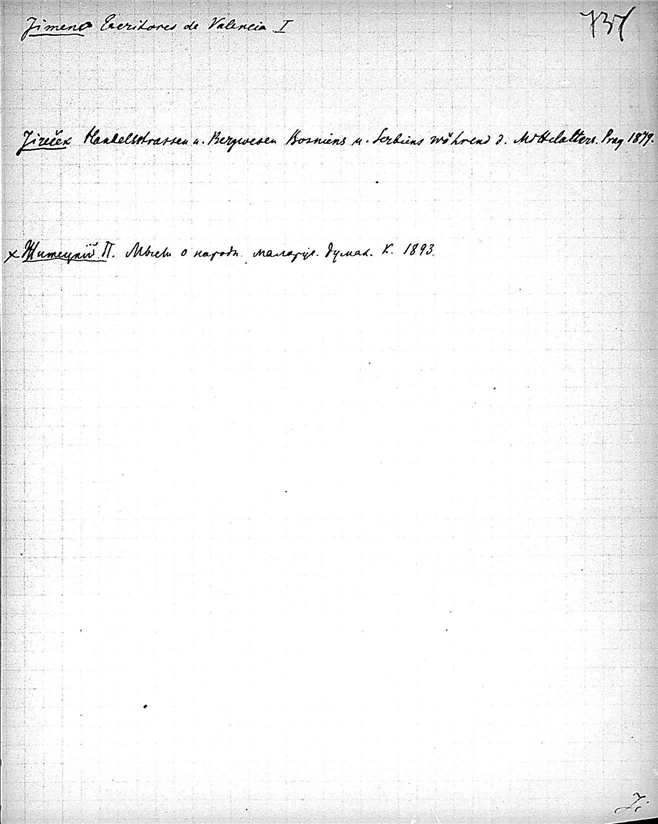 Jimeno Escritores de Valencia I
737
Jireček Handelsstrassen u. Bergwesen Bosniens u. Serbiens während d. Mittelalters. Prag 1879.
x Житецкій П. Мысли о народн. малорус. думах. К. 1893.
Ji